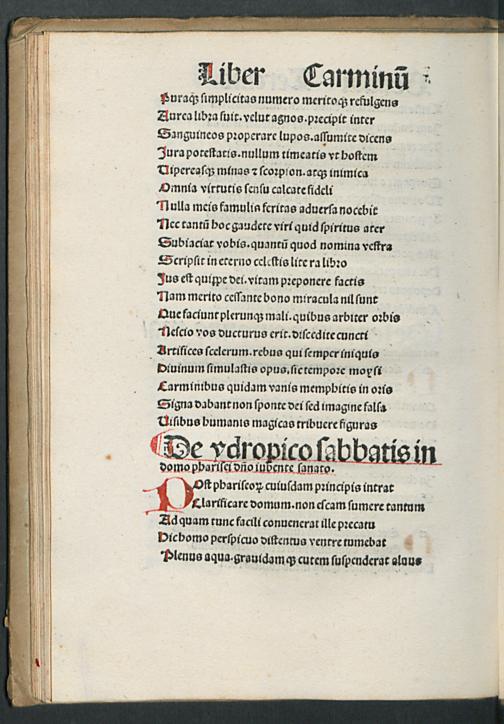 Liber Carminū
Puraq; simplicitas numero meritoq; refulgens
Aurea libra fuit. velut agnos. precipit inter
Sanguineos properare lupos. assumite dicens
Jura potestatis. nullum timeatis vt hostem
Vipereasq; minas ⁊ scorpion. atq; inimica
Omnia virtutis sensu calcate fideli
Nulla meis famulis feritas aduersa nocebit
Nec tantū hoc gaudete viri quid spiritus ater
Subiaciat vobis. quantū quod nomina vestra
Scripsit in eterno celestis littera libro
Jus est quippe dei. vitam preponere factis
Nam merito cessante bono miracula nil sunt
Que faciunt plerunq; mali. quibus arbiter orbis
Nescio vos ducturus erit. discedite cuncti
Artifices scelerum. rebus qui semper iniquis
Diuinum simulastis opus. sic tempore moysi
Carminibus quidam vanis memphitis in oris
Signa dabant non sponte dei sed imagine falsa
Visibus humanis magicas tribuere figuras
De ydropico sabbatis in
domo pharisei dn̄o iubente sanato.
Post phariseoꝝ cuiusdam principis intrat
Clarificare domum. non escam sumere tantum
Ad quam tunc facili conuenerat ille precatu
Hic homo perspicuo distentus ventre tumebat
Plenus aqua. grauidam q; cutem suspenderat aluus